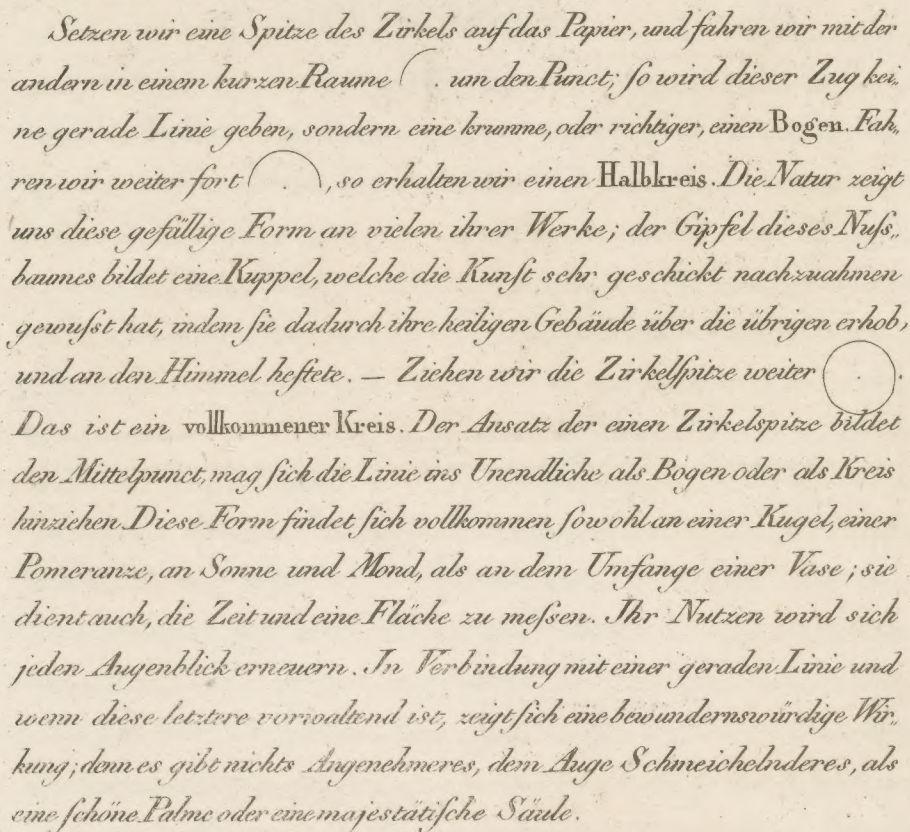 Setzen wir eine Spitze des Zirkels auf das Papier, und fahren wir mit der
andern in einem kurzen Raume . um den Punct; ſo wird dieser Zug kei„
ne gerade Linie geben, sondern eine krumme, oder richtiger, einen Bogen. Fah„
ren wir weiter fort . , so erhalten wir einen Halbkreis. Die Natur zeigt
uns diese gefällige Form an vielen ihrer Werke; der Gipfel dieses Nuſs„
baumes bildet eine Kuppel, welche die Kunſt sehr geschickt nachzuahmen
gewuſst hat, indem ſie dadurch ihre heiligen Gebäude über die übrigen erhob,
und an den Himmel heftete. — Ziehen wir die Zirkelſpitze weiter . .
Das ist ein vollkommener Kreis. Der Ansatz der einen Zirkelspitze bildet
den Mittelpunct, mag ſich die Linie ins Unendliche als Bogen oder als Kreis
hinziehen. Diese Form findet ſich vollkommen ſowohl an einer Kugel, einer
Pomeranze, an Sonne und Mond, als an dem Umfange einer Vase; sie
dient auch, die Zeit und eine Fläche zu meſsen. Ihr Nutzen wird sich
jeden Augenblick erneuern. In Verbindung mit einer geraden Linie und
wenn diese letztere vorwaltend ist, zeigt ſich eine bewundernswürdige Wir„
kung; denn es gibt nichts Angenehmeres, dem Auge Schmeichelnderes, als
eine ſchöne Palme oder eine majestätiſche Säule.